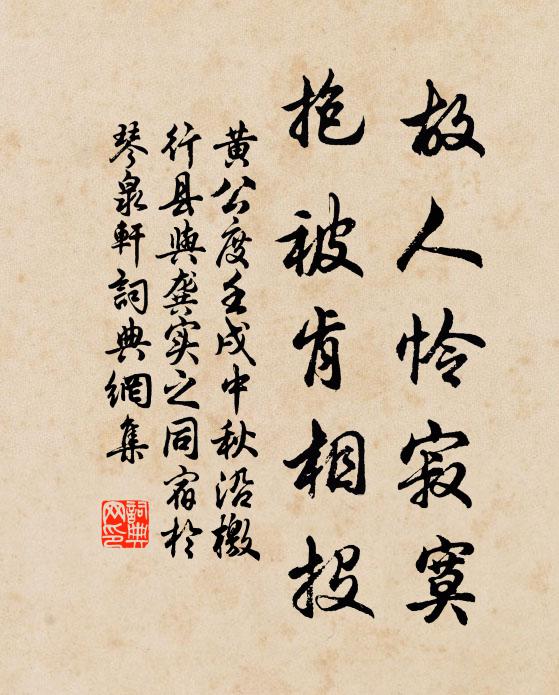 故人怜寂寞
抱被肯相投
黄公度壬戌中秋沿檄
行县與龚实之同宿於
琴泉軒詞典網集
詞典
网印